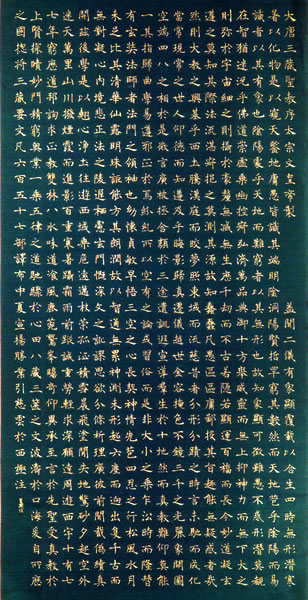 大唐三藏聖教序太宗文皇帝製 蓋聞二儀有象顯覆載以含生四時無形潛寒
暑以化物是以窺天鑑地庸愚皆識其端明陰洞陽賢哲罕窮其數然而天地苞乎陰陽而易
識者以其有象也陰陽處乎天地而難窮者以其無形也故知象顯可徵雖愚不惑形潛莫覩
在智猶迷況乎佛道崇虛乘幽控寂弘濟萬品典御十方舉威靈而無上抑神力而無下大之
則彌於宇宙細之則攝於毫釐無滅無生歷千劫而不古若隱若顯運百福而長今妙道凝玄
遵之莫知其際法流湛寂挹之莫測其源故知蠢蠢凡愚區區庸鄙投其旨趣能無疑惑者哉
然則大教之興基乎西土騰漢庭而皎夢照東域而流慈昔者分形分跡之時言未馳而成化
當常現常之世人仰德而知遵及乎晦影歸真遷儀越世金容掩色不鏡三千之光麗象開圖
空端四八之相於是微言廣被拯含類於三途遺訓遐宣導群生於十地然而真教難仰莫能
一其指歸曲學易遵邪正於焉紛糺所以空有之論或習俗而是非大小之乘乍沿時而隆替
有玄奘法師者法門之領袖也幼懷貞敏早悟三空之心長契神情先苞四忍之行松風水月
未足比其清華仙露明珠詎能方其朗潤故以智通無累神測未形超六塵而迥出隻千古而
無對凝心內境悲正法之陵遲栖慮玄門慨深文之訛謬思欲分條析理廣彼前聞截偽續真
開茲後學是以翹心淨土往遊西域乘危遠邁杖策孤征積雪晨飛途間失地驚砂夕起空外
迷天萬里山川撥煙霞而進影百重寒暑躡霜雨而前蹤誠重勞輕求深願達周遊西宇十有
七年窮歷道邦詢求正教雙林八水味道飡風鹿菀鷲峰瞻奇仰異承至言於先聖受真教於
上賢探賾妙門精窮奧業一乘五律之道馳驟於心田八藏三篋之文波濤於口海爰自所歷
之國總將三藏要文凡六百五十七部譯布中夏宣揚勝業引慈雲於西極注